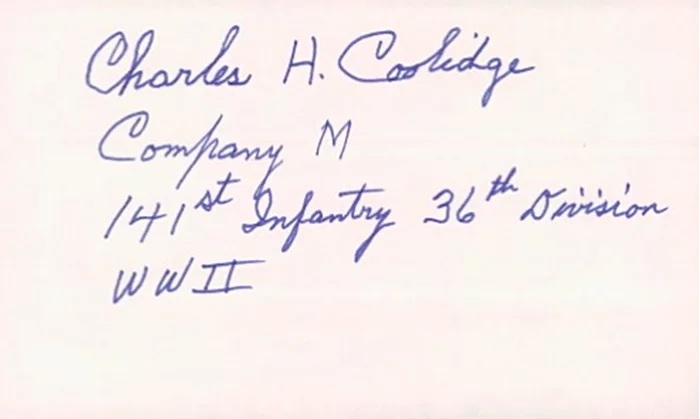 Charles H. Coolidge
Company M
141st Infantry 36th Division
WW II